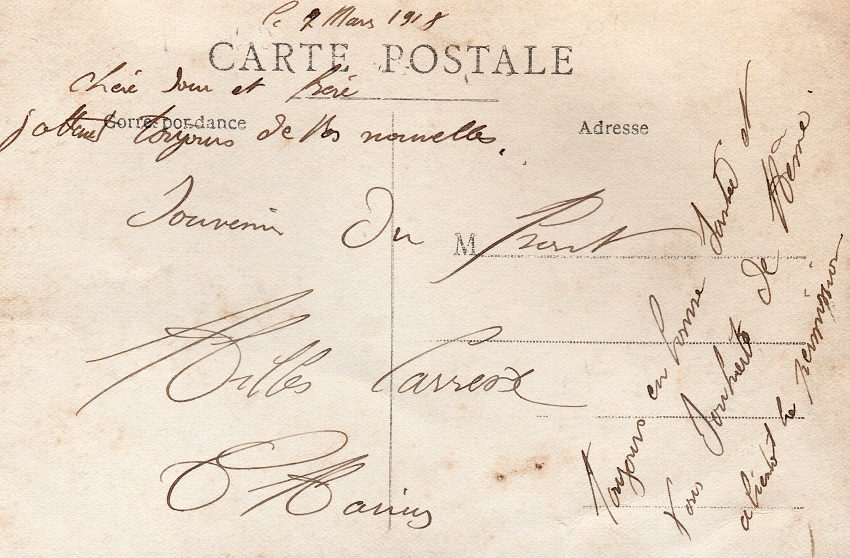 le 2 Mars 1918
CARTE POSTALE
chère Soeur et frère
Correspondance
Adresse
j'attend toujours de vos nouvelles.
Souvenir du Front
M
Milles Caresse
Marius
Toujours en bonne Santé et
vous Souhaite de Même.
a bientot la permission